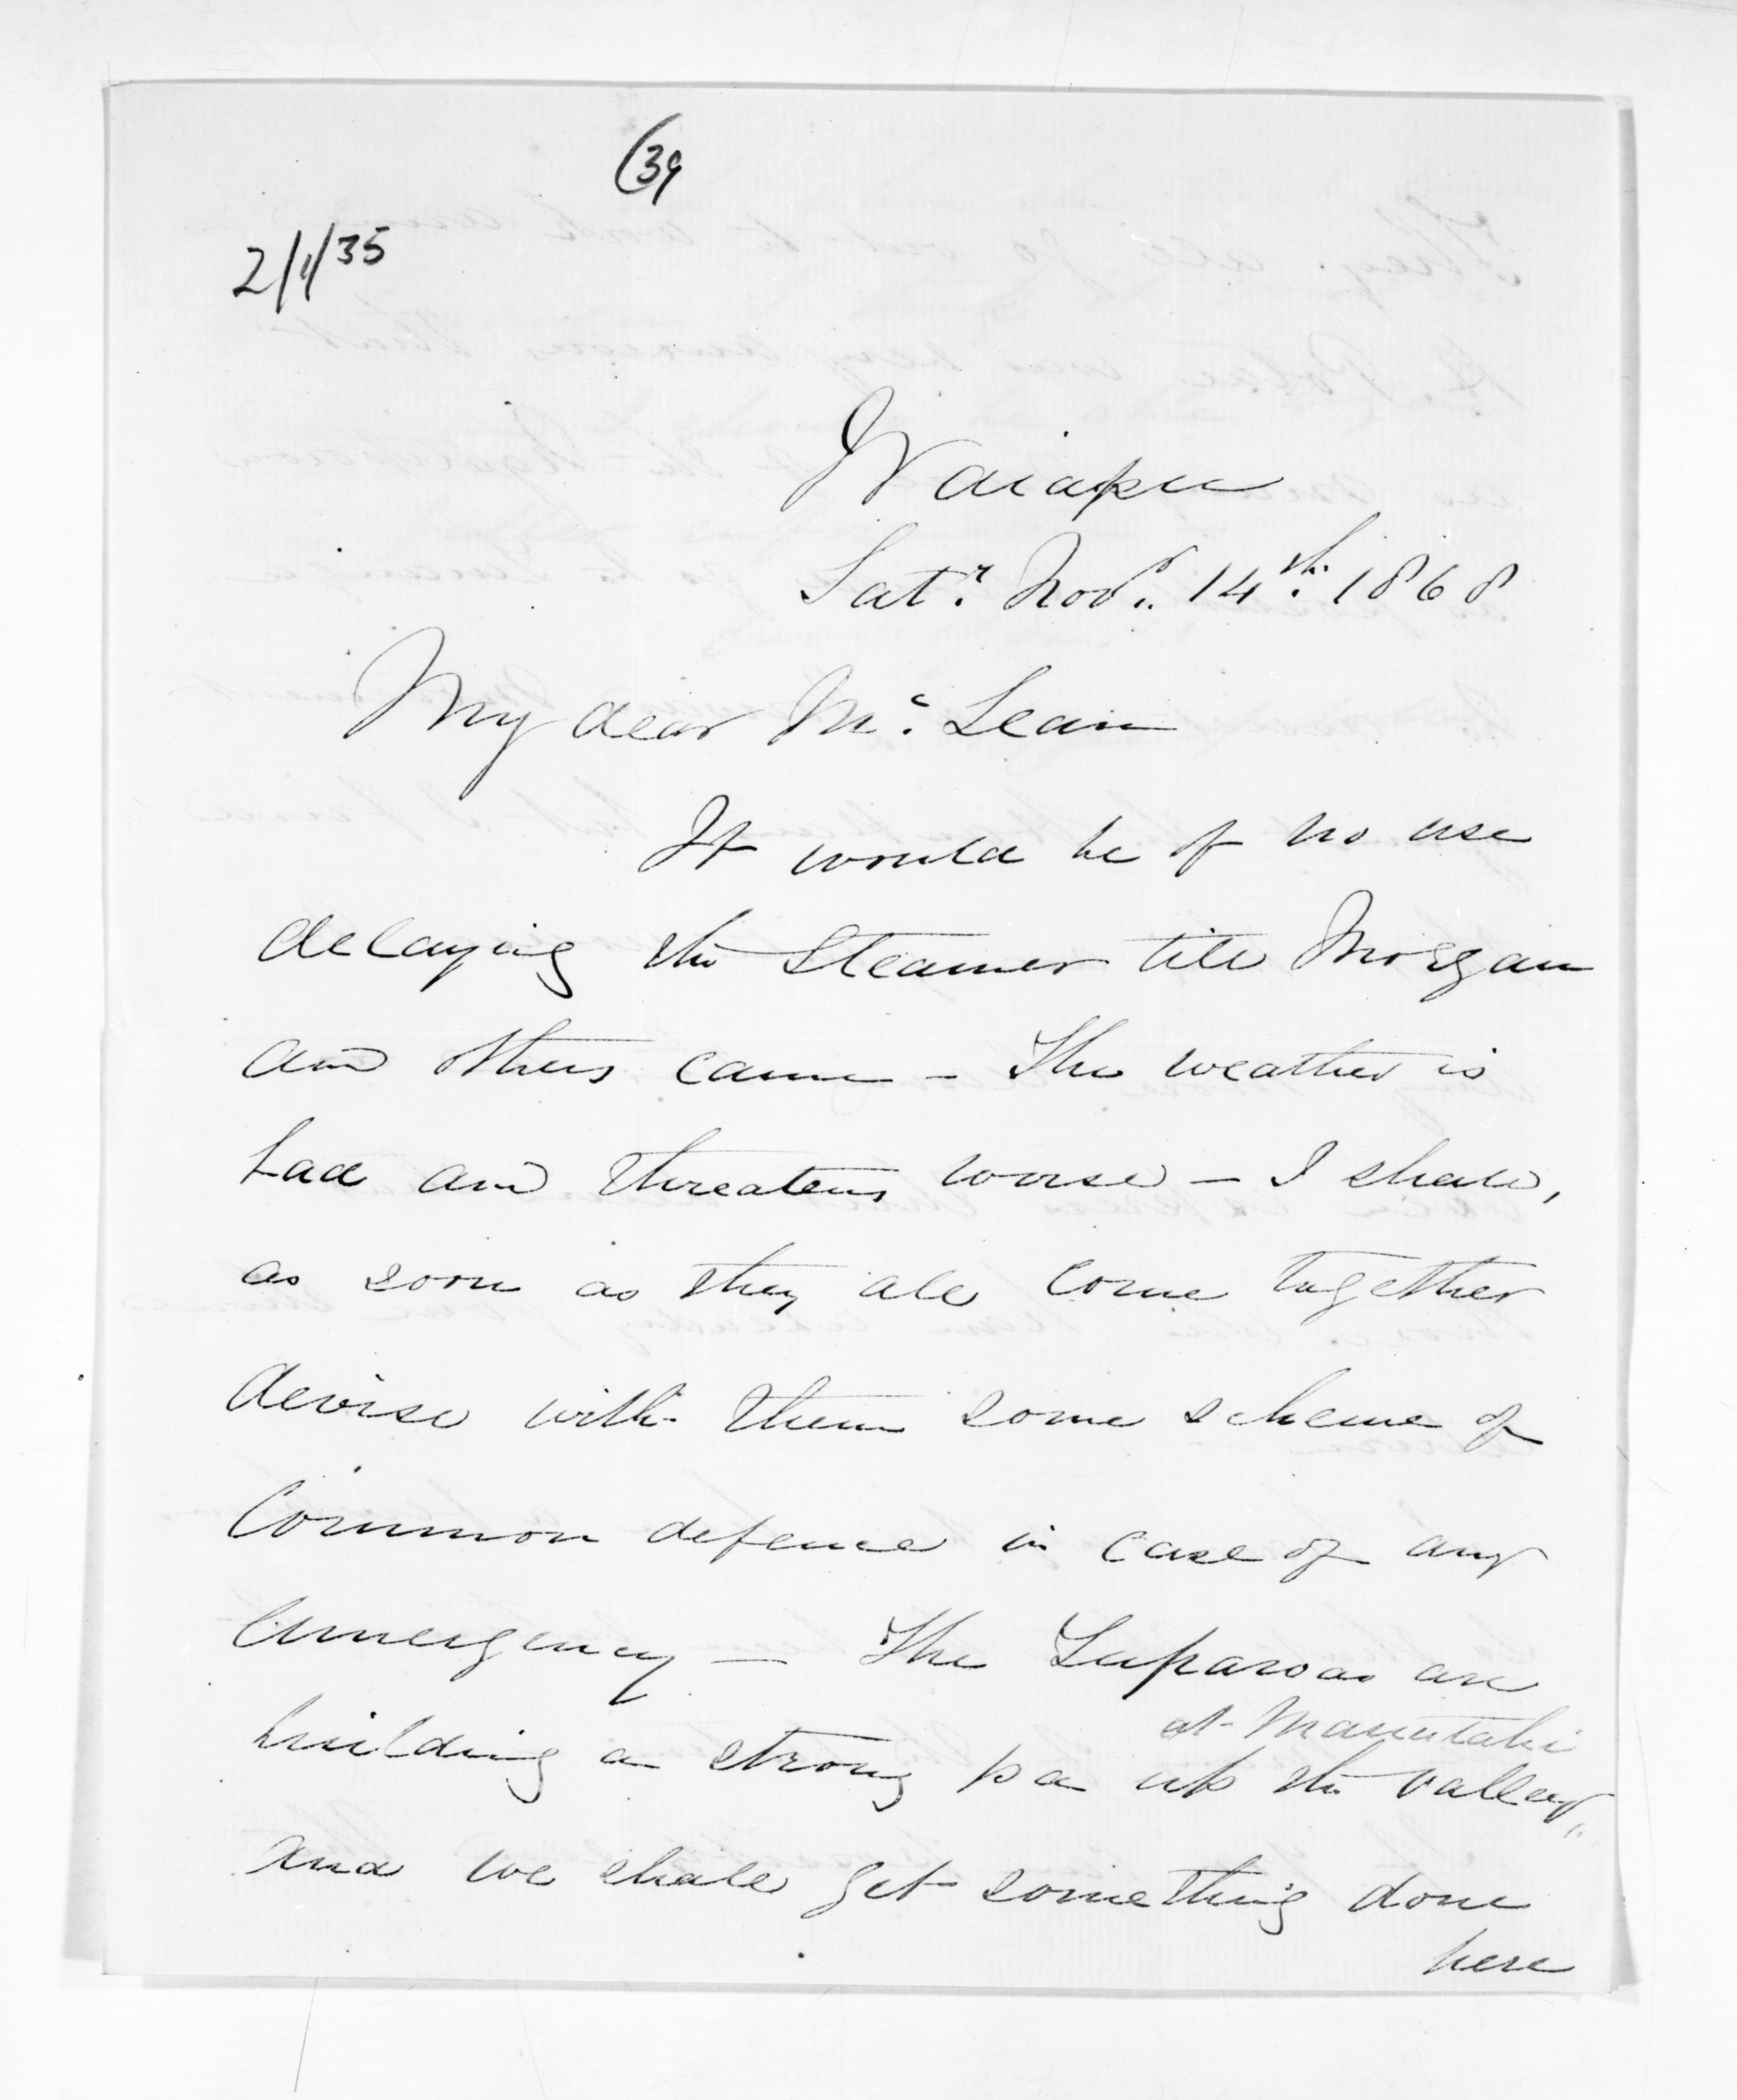 (39
2/1/35
Waiapu
Satr. Novr. 14th. 1868
My dear Mc. Lean
It would be of no use
delaying the Steamer till Morgan
and others came - The weather is
bad and threatens worse - I shall,
as soon as they all come together
devise with them some scheme of
Common defence in case of any
Emergency - The Tuparoas are
at Manutahi
building a strong pa up the valley,
and we shall get something done
here